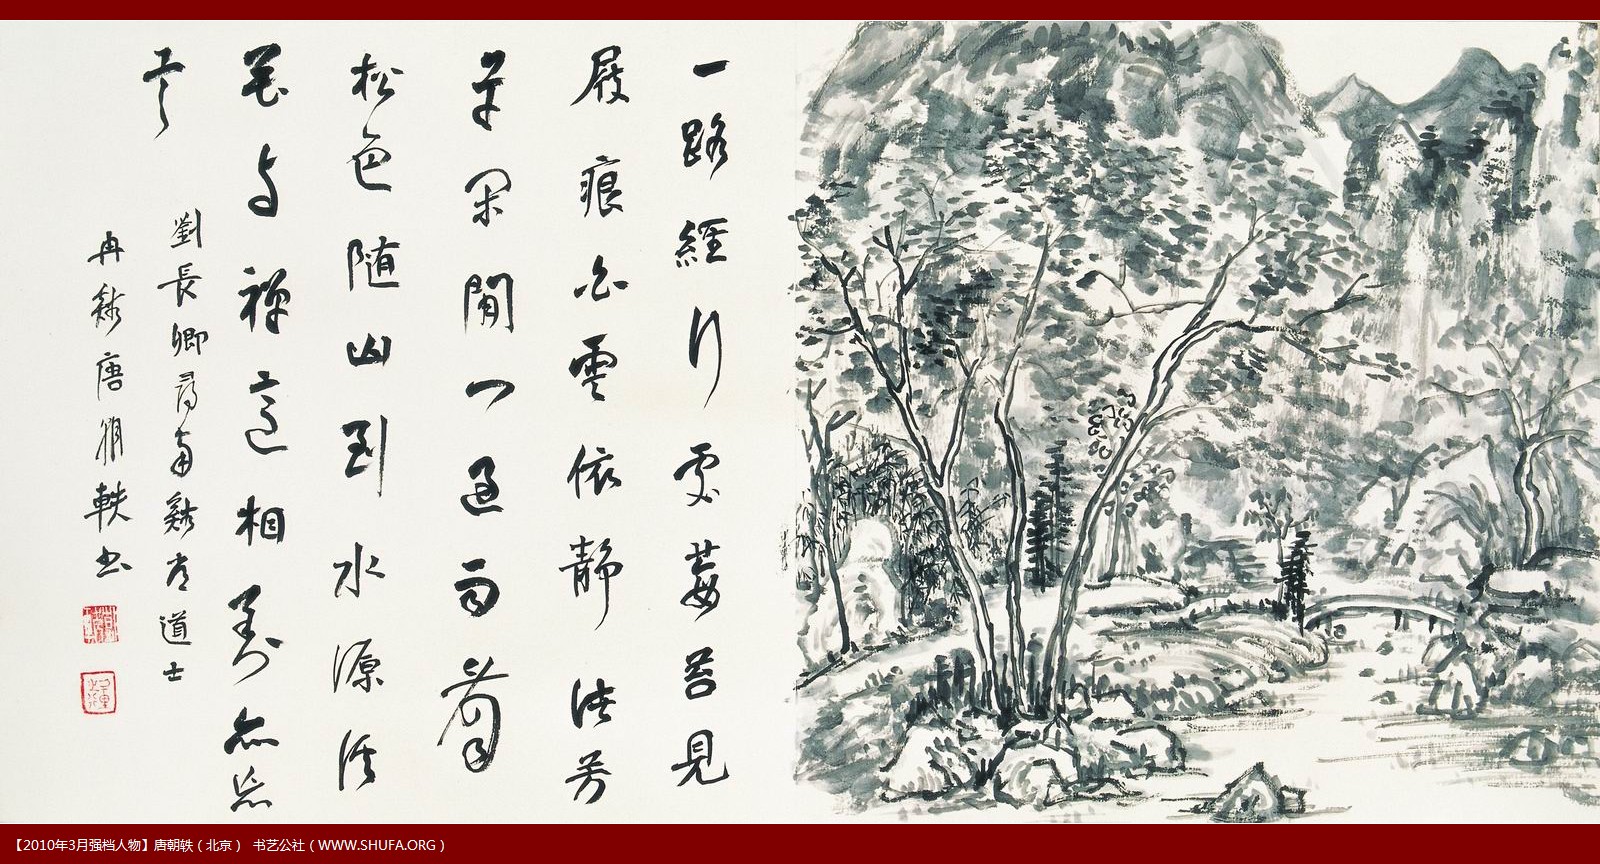 一路經行處莓苔見
屐痕白雲依静渚芳
草閉閒門過雨看
松色随山到水源溪
花与禅意相對亦忘
言
劉長卿尋南谿常道士
冉谿唐朝軼书
【2010年3月强档人物】唐朝轶（北京） 书艺公社（WWW.SHUFA.ORG）